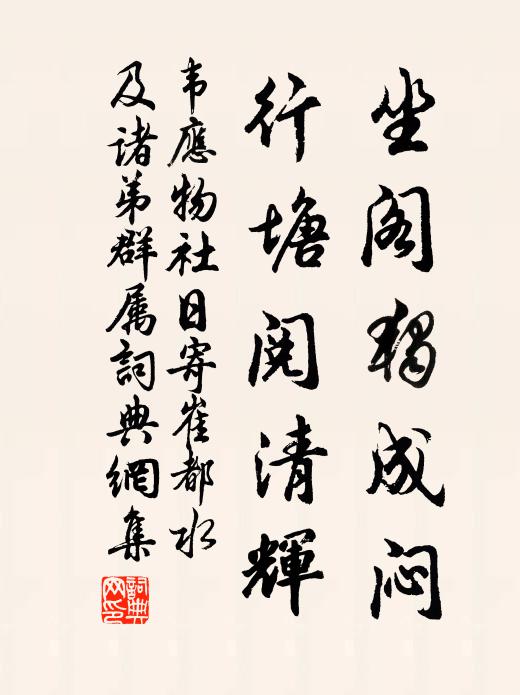 坐阁獨成闷
行塘閱清輝
韦應物社日寄崔都水
及诸弟群属詞典網集
詞典網印